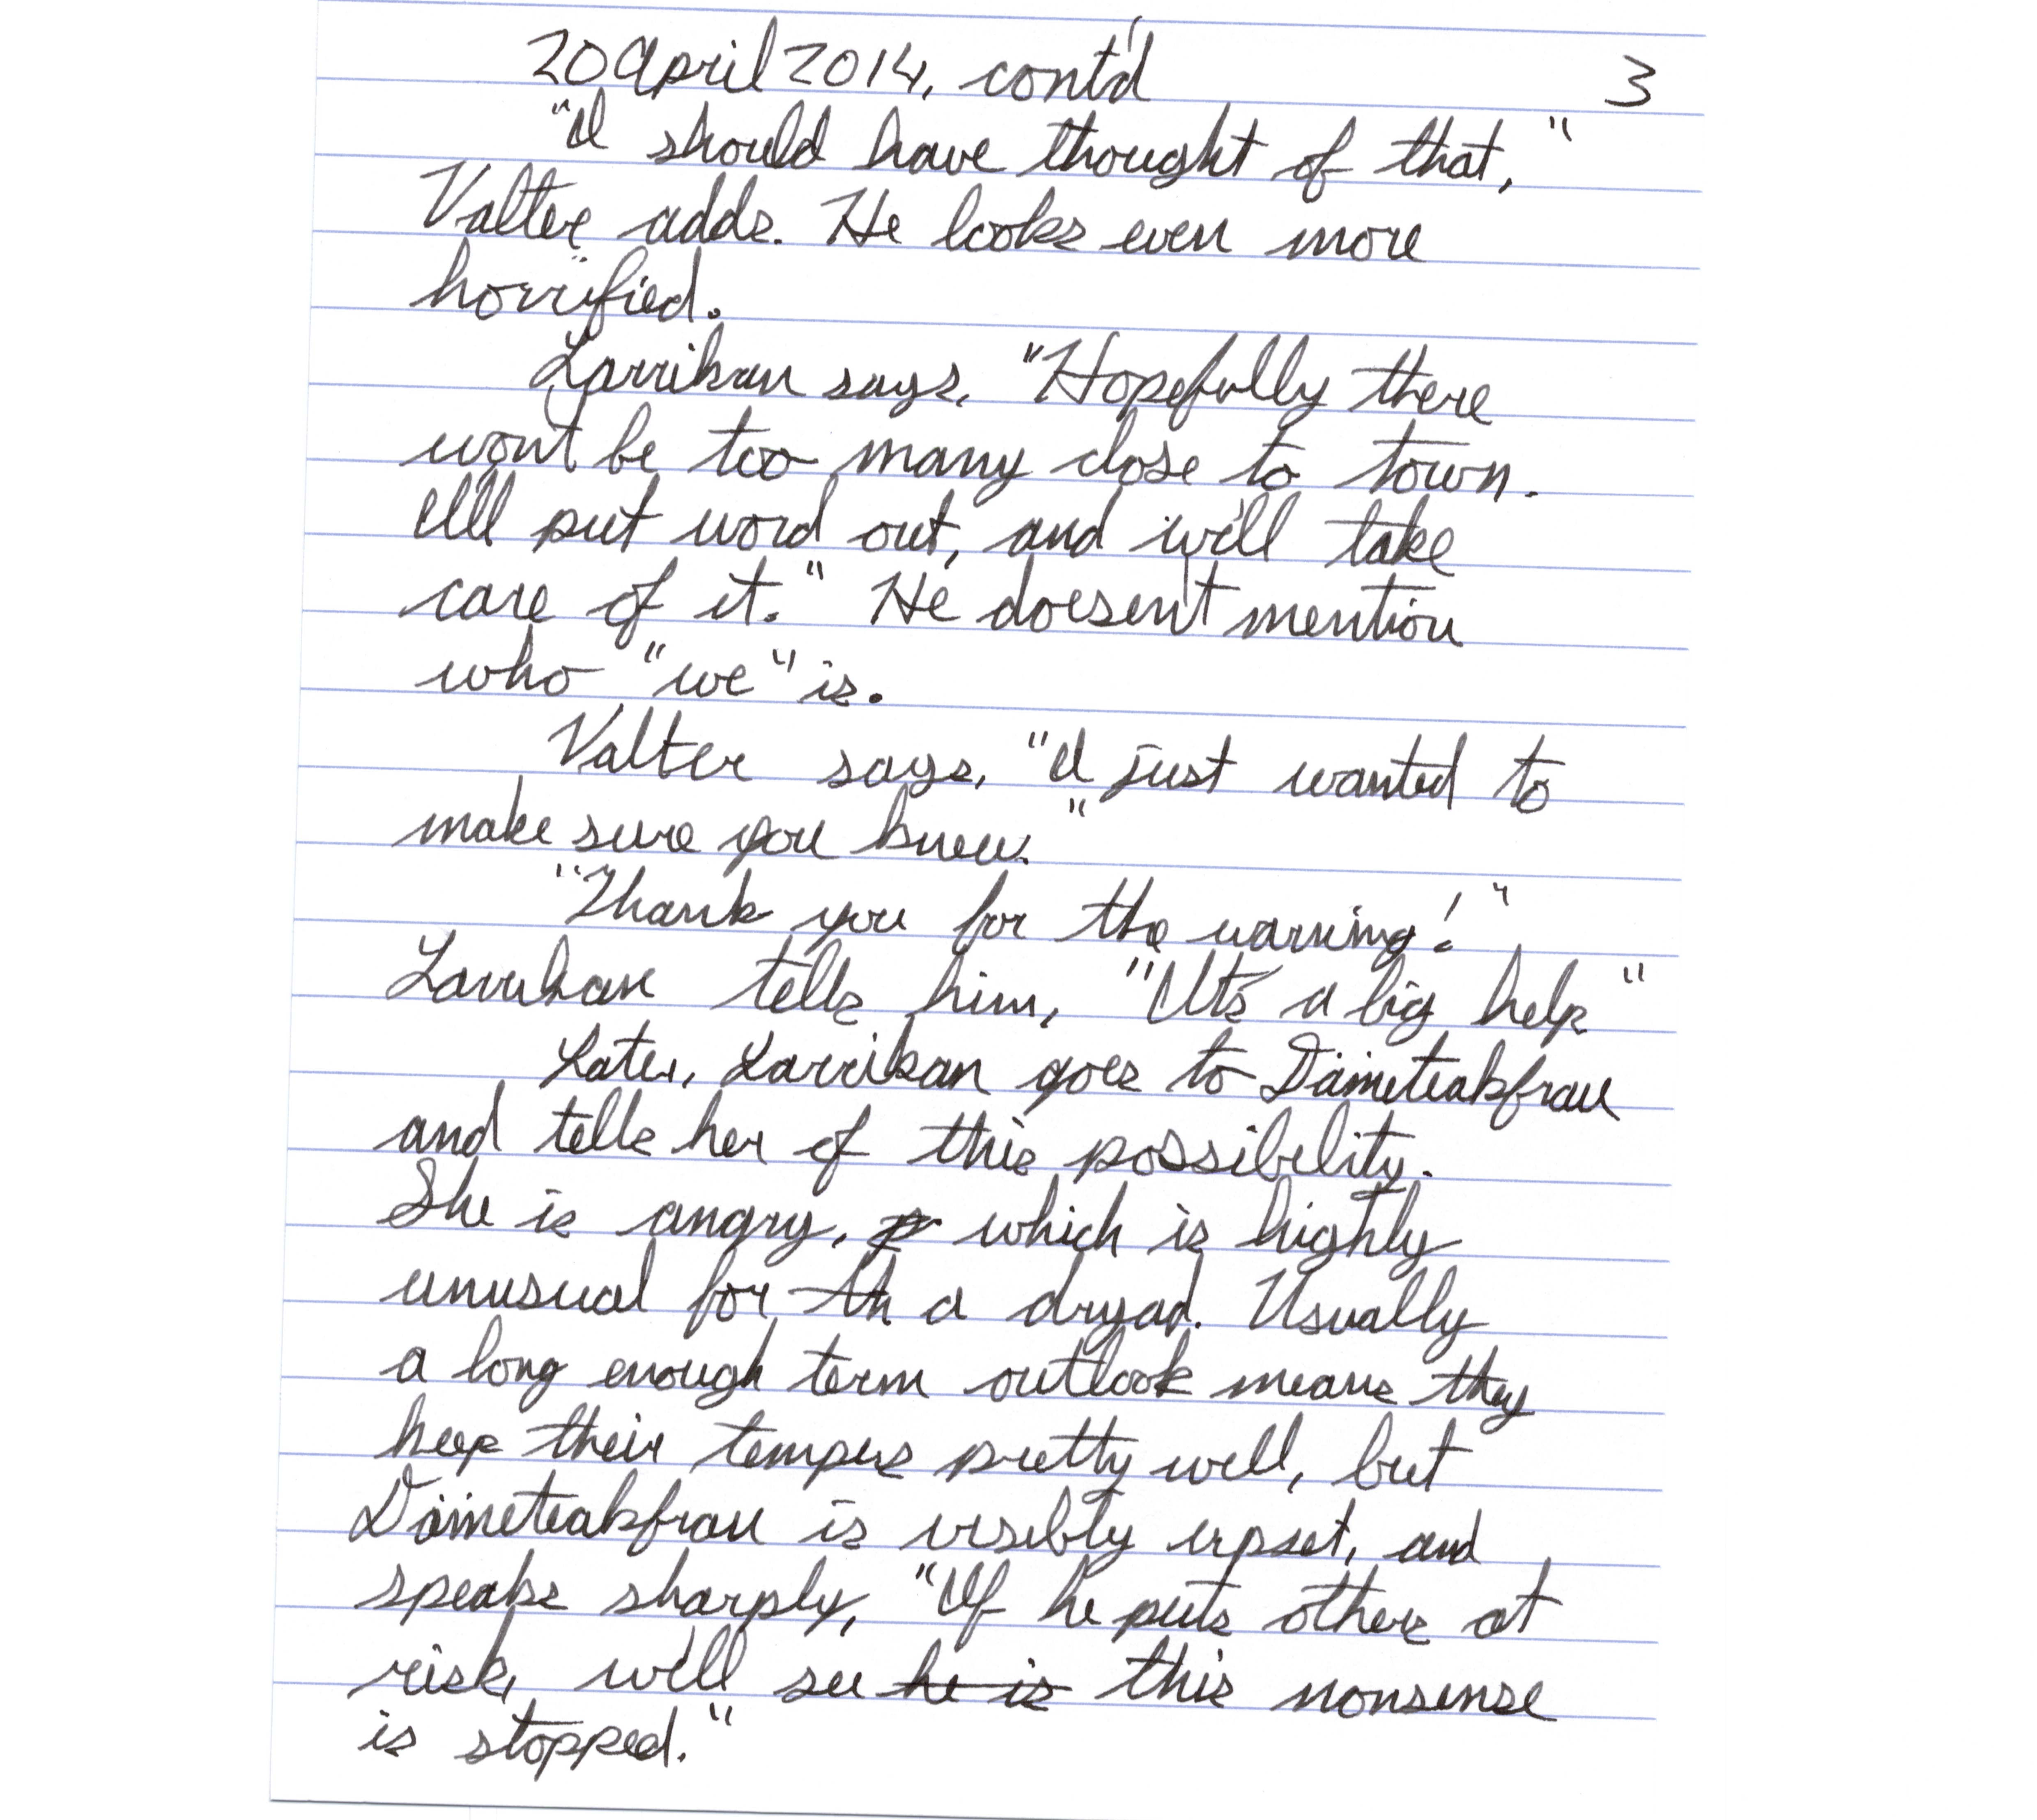 20 April 2014, cont'd 3
"I should have thought of that,"
Valter adds. He looks even more
horrified.
Larrikan says, "Hopefully there
won't be too many close to town.
I'll put word out, and we'll take
care of it." He doesen't mention
who "we" is.
Valter says, "I just wanted to
make sure you knew."
"Thank you for the warning!"
Larrikan tells him, "It's a big help"
Later, Larrikan goes to Dämeteakfrau
and tells her of this possibility.
She is angry, which is highly
unusual for th a dryad. Usually
a long enough term outlook means they
keep their tempers pretty well, but
Dämeteakfrau is visibly upset, and
speaks sharply, "If he puts others at
risk, we'll see he is this nonsense
is stopped."